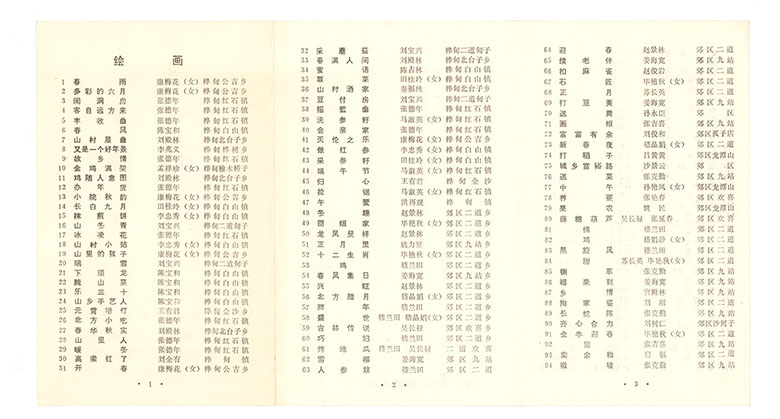 绘 画
1 春 雨 康梅花（女）桦甸公吉乡
2 多彩的六月 康梅花（女）桦甸公吉乡
3 闹洞房 张德年 桦甸红石镇
4 客自远方来 张德年 桦甸红石镇
5 丰收曲 张德年 桦甸红石镇
6 春 风 陈宝和 桦甸白山镇
7 山村晨曲 刘殿林 桦甸北台子乡
8 又是一个好年景 李亮义 桦甸桦树乡
9 故乡情 张德年 桦甸红石镇
10 金鸡满架 孟祥珍（女）桦甸榆木桥子
11 鸡随人意图 刘殿林 桦甸北台子乡
12 办年货 张德年 桦甸红石镇
13 小院秋韵 康梅花（女）桦甸公吉乡
14 长白九月 田桂玲（女）桦甸白山镇
15 摊煎饼 李忠秀（女）桦甸白山镇
16 山冬青 刘宝兴 桦甸二道甸子
17 冰凌花 张德年 桦甸红石镇
18 山村小站 李忠秀（女）桦甸白山镇
19 山里的孩子 康梅花（女）桦甸公吉乡
20 瑞 雪 刘宝兴 桦甸二道甸子
21 下须龙 陈宝和 桦甸白山镇
22 腌山菜 陈宝和 桦甸白山镇
23 乐三十 陈宝和 桦甸白山镇
24 山乡手艺人 陈宝和 桦甸白山镇
25 元宵增灯 王有君 桦甸金沙乡
26 北方小吃 张德年 桦甸红石镇
27 春华秋实 刘殿林 桦甸北台子乡
28 山里人 张德年 桦甸红石镇
29 暖 冬 张德年 桦甸红石镇
30 高粱红了 刘金有 桦甸镇
31 开 春 康梅花（女）桦甸公吉乡
· 1 ·
32 采蘑菇 刘宝兴 桦甸二道甸子
33 春满人间 刘殿林 桦甸北台子乡
34 蜜 语 陈占林 桦甸白山镇
35 取 菜 田桂玲（女）桦甸白山镇
36 山村酒家 桦甸北台子乡
37 豆付房 刘宝兴 桦甸二道甸子
38 摇篮曲 张德年 桦甸红石镇
39 洗参籽 马淑英（女）桦甸红石镇
40 会亲家 张德年 桦甸红石镇
41 天伦之乐 康梅花（女）桦甸公吉乡
42 做红参 李忠秀（女）桦甸白山镇
43 采参籽 田桂玲（女）桦甸白山镇
44 端午节 马淑英（女）桦甸红石镇
45 归 心 王有君 桦甸金沙
46 拉锯 马淑英（女）桦甸红石镇
47 牛 桦甸镇
48 冬 赵景林 郊区二道乡
49 毕艳秋（女）郊区二道乡
50 龙凤呈祥 赵景林 郊区二道乡
51 正月里 姚力 郊区九站乡
52 十二生肖 毕艳秋（女）郊区二道乡
53 鸡 嵇兰田 郊区二道乡
54 春风集日 姜海宽 郊区九站乡
55 兴 旺 赵景林 郊区二道乡
56 北方腊月 嵇晶娟（女）郊区二道乡
57 年 嵇兰田 郊区二道乡
58 盛 世 嵇兰田 嵇晶娟（女）郊区二道乡
59 吉祥传说 吴长禄 郊区欢喜乡
60 巧 妇 嵇兰田 郊区二道乡
61 烤地瓜 嵇兰田 吴长禄 二道 欢喜
62 姜海宽 郊区九站
63 人参娃 嵇兰田 郊区二道
· 2 ·
64 迎 春 赵景林 郊区二道
65 续老伴 姜海宽 郊区九站
66 扣麻雀 赵俊岩 郊区二道
67 石 匠 毕艳秋（女）郊区二道
68 正 月 苏长英 郊区二道
69 打豆荚 姜海宽 郊区九站
70 送 孙永臣 郊区
71 画 柜 张吉喜 郊区九站
72 富富有余 刘俊和 郊区孤子店
73 新春夜 嵇晶娟（女）郊区二道
74 打稻子 吕黄黄 郊区龙潭山
75 城乡富裕路 沙景云 郊区
76 送 菜 张克勤 郊区九站
77 中 午 毕艳凤（女）郊区龙潭山
78 养 张艳春 郊区欢喜
79 是 农 魏民 郊区龙潭山
80 蘸糖葫芦 吴长禄 张延春 郊区欢喜
81 情 嵇兰田 郊区二道
82 鸡 嵇娟静（女）郊区二道
83 黑旋风 嵇兰田 郊区二道
84 甜 苏长英 毕艳秋（女）郊区二道
85 铡 草 张克勤 郊区九站
86 福来到 姜海宽 郊区九站
87 乡 情 宫殿林 郊区九站
88 掏家雀 刘刚 郊区二道
89 长蛇阵 张克勤 郊区九站
90 齐心合力 刘树仁 郊区沙河子
91 金牛迎春 毕艳秋（女）郊区二道
92 张吉喜 郊区九站
93 卖余粮 房福 郊区二道
94 张克勤 郊区九站
· 3 ·